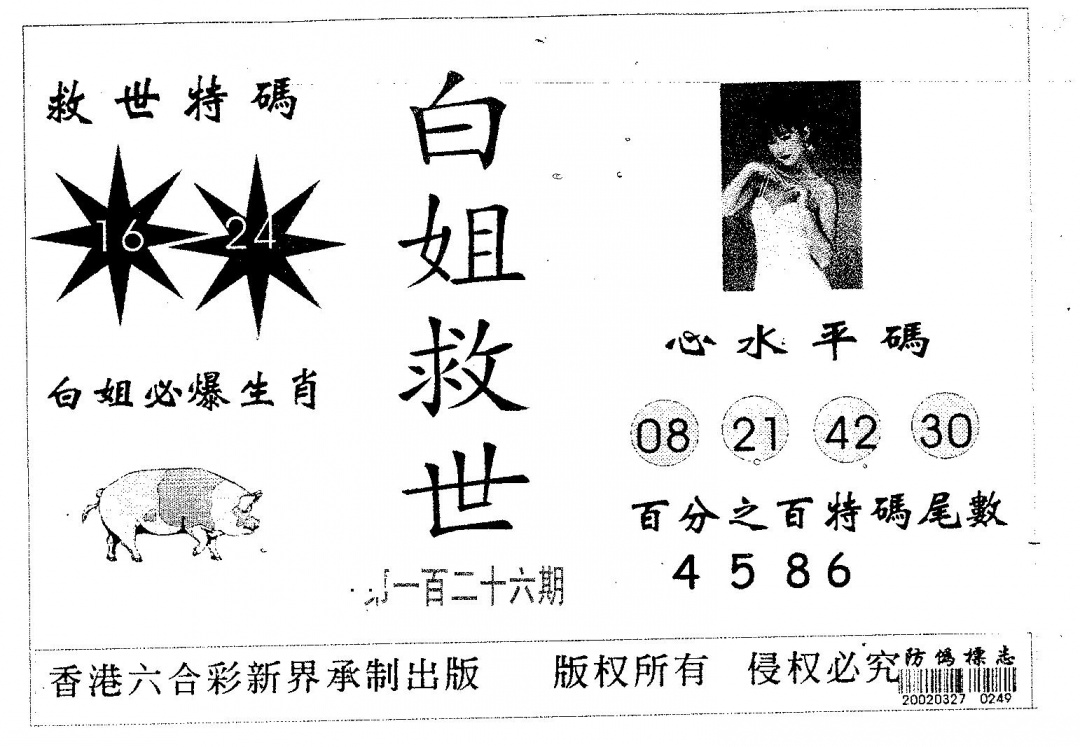 救世特碼
16 24
白姐必爆生肖
白姐救世
一百二十六期
心水平碼
08 21 42 30
百分之百特碼尾數
4 5 8 6
香港六合彩新界承制出版 版权所有 侵权必究
防僞標志
20020327 0249